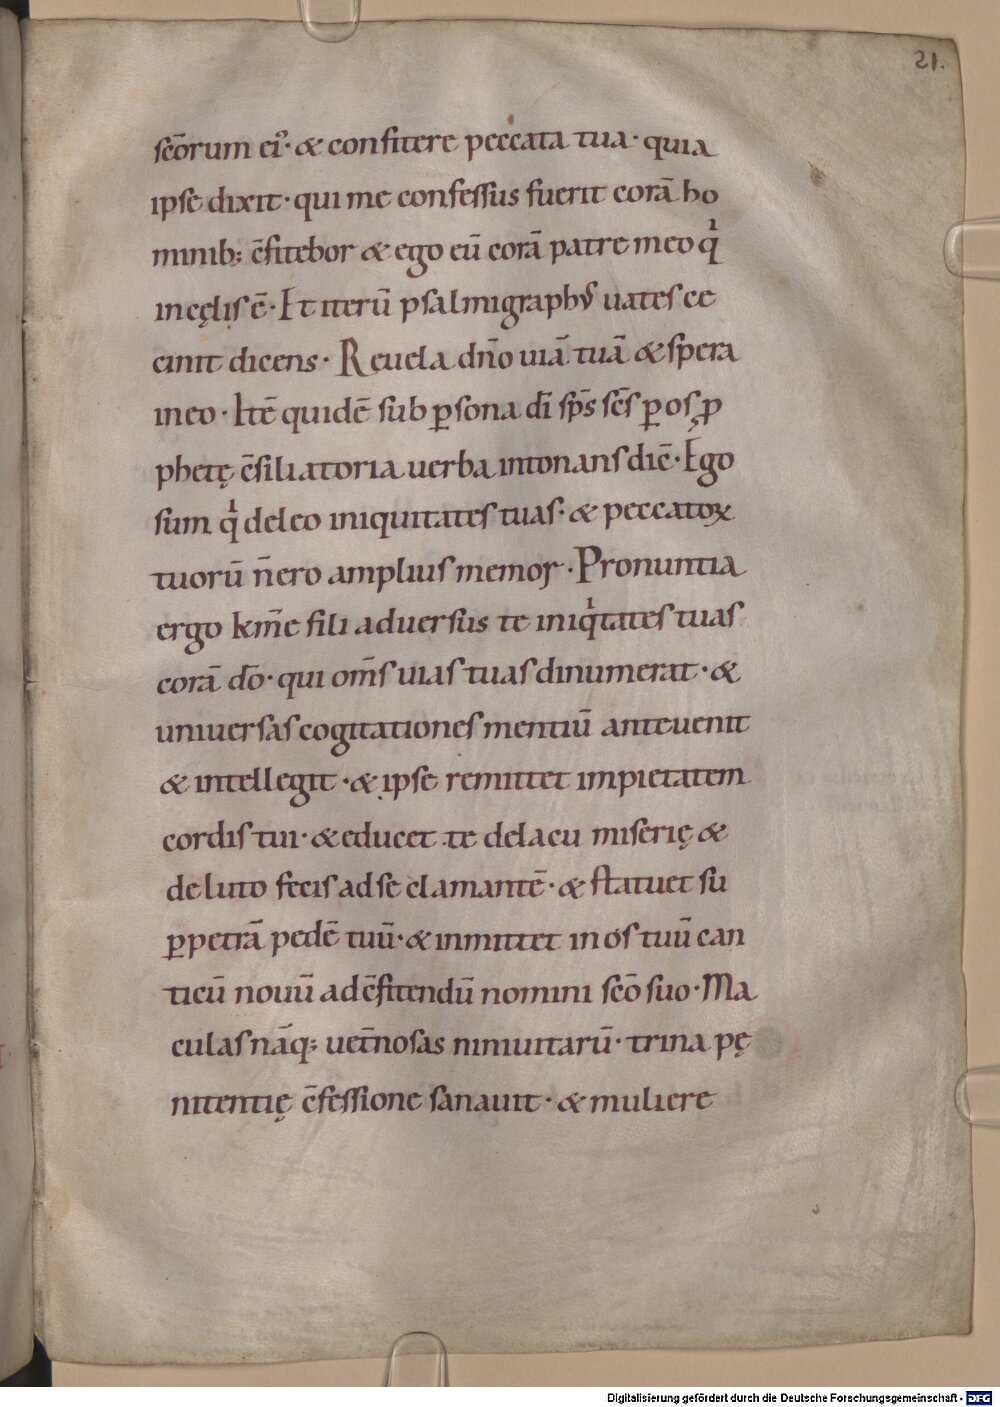 21.
sc̄orum ei᷒· & confitere peccata tua· quia
ipse dixit· qui me confessus fuerit corā ho
minib; c̄fitebor & ego eū corā patre meo qͥ
in cęlis ē· Et iterū psalmigraphus uates ce
cinit dicens· Reuela dn̄o uiā tuā & spera
in eo· Itē quidē sub ꝑsona dī sp̄s sc̄s ꝑ os ꝓ
phetę c̄siliatoria uerba intonans dic̄· Ego
sum qͥ deleo iniquitates tuas· & peccatoꝝ
tuorū n̄ ero amplius memor· Pronuntia
ergo km̄e fili aduersus te iniqͥtates tuas
corā dō· qui om̄s uias tuas dinumerat· &
uniuersas cogitationes mentiū anteuenit
& intellegit· & ipse remittet impietatem
cordis tui· & educet te de lacu miserię &
de luto fecis ad se clamantē· & statuet su
ꝑ petrā pedē tuū· & inmittet in os tuū can
ticū nouū ad c̄fitendū nomini sc̄o suo· Ma
culas nāq; uet̄nosas niniuitarū· trina pę
nitentię c̄fessione sanauit· & muliere
Digitalisierung gefördert durch die Deutsche Forschungsgemeinschaft - DFG